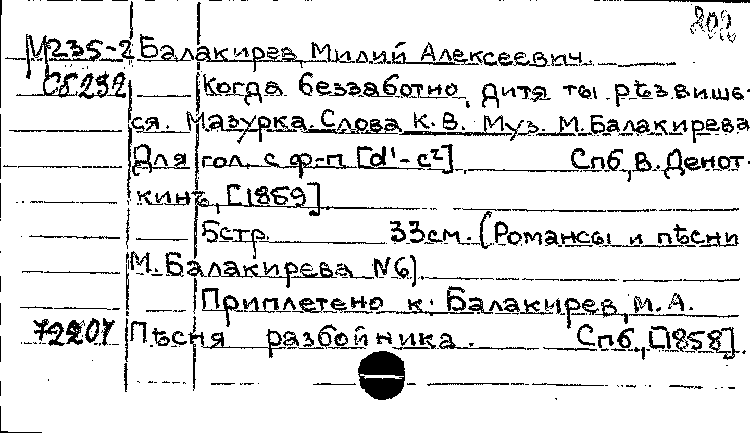 202
М235-2 Балакирев, Милий Алексеевич.
Сб232 Когда беззаботно, дитя ты рѣзвишь-
ся. Мазурка. Слова К.В. Муз. М.Балакирева
Для гол. с ф-п [d'-c²]. Спб, В. Денот-
кинъ, [1859].
5стр. 33см. (Романсы и пѣсни
М.Балакирева N6).
Приплетено к: Балакирев, М.А.
72207 Пѣсня разбойника. Спб., [1858].